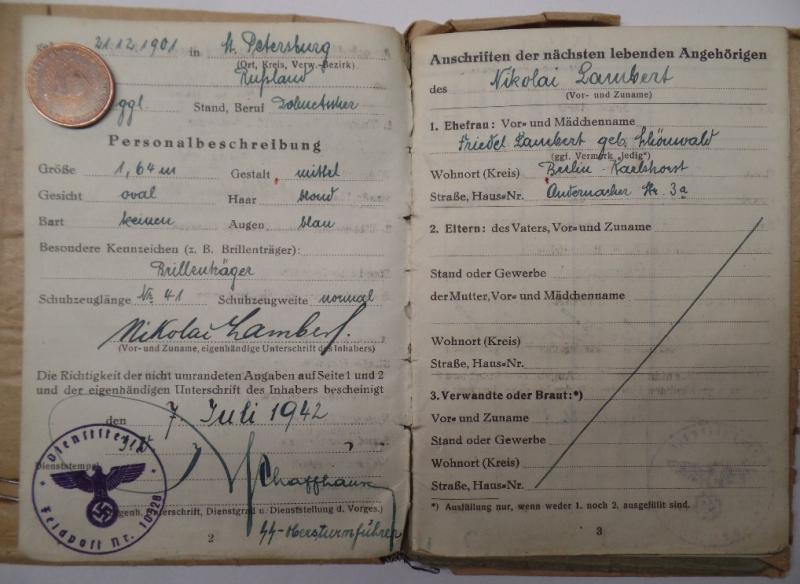 21.12.1901 in St. Petersburg
(Ort, Kreis, Verw.-Bezirk)
Rußland
ggl. Stand, Beruf Dolmetscher
Personalbeschreibung
Größe 1,64 m Gestalt mittel
Gesicht oval Haar blond
Bart keinen Augen blau
Besondere Kennzeichen (z. B. Brillenträger):
Brillenträger
Schuhzeuglänge Nr. 41 Schuhzeugweite normal
Nikolai Lambert.
(Vor- und Zuname, eigenhändige Unterschrift des Inhabers)
Die Richtigkeit der nicht umrandeten Angaben auf Seite 1 und 2
und der eigenhändigen Unterschrift des Inhabers bescheinigt
den 7. Juli 1942
Dienststempel
Feldpost Nr. 10328
Unterschrift, Dienstgrad u. Dienststellung d. Vorges.)
SS-Obersturmführer
2
Anschriften der nächsten lebenden Angehörigen
des Nikolai Lambert
(Vor- und Zuname)
1. Ehefrau: Vor- und Mädchenname
Friedel Lambert geb. Schönwald
(ggf. Vermerk „ledig")
Wohnort (Kreis) Berlin-Karlshorst
Straße, Haus-Nr. Andernacher Str. 3a
2. Eltern: des Vaters, Vor- und Zuname
Stand oder Gewerbe
der Mutter, Vor- und Mädchenname
Wohnort (Kreis)
Straße, Haus-Nr.
3. Verwandte oder Braut:*)
Vor- und Zuname
Stand oder Gewerbe
Wohnort (Kreis)
Straße, Haus-Nr.
*) Ausfüllung nur, wenn weder 1. noch 2. ausgefüllt sind.
3